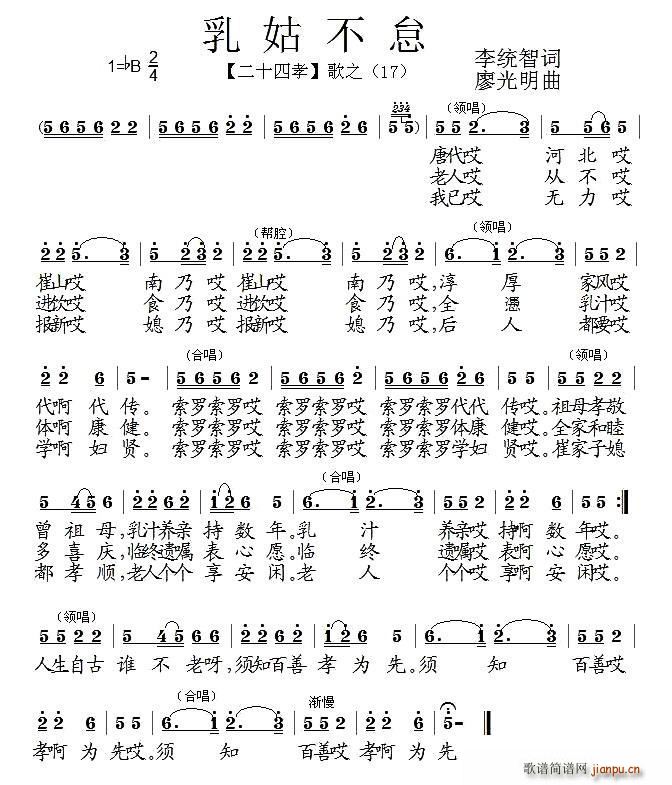 乳姑不怠
1=♭B 2/4
【二十四孝】歌之（17）
李统智词
廖光明曲
(5656 22 | 5656 22 | 5656 26 | 55) | 552. 3 | 5 56 5 |
（领唱）
唐代哎 河北哎
老人哎 从不哎
我已哎 无力哎
225. 3 | 5 23 2 | 225. 3 | 5 23 2 | 6. 1 2. 3 | 55 5 |
（帮腔） （领唱）
崔山哎 南乃哎 崔山哎 南乃哎,淳厚 家风哎
进饮哎 食乃哎 进饮哎 食乃哎,全憑 乳汁哎
报新哎 媳乃哎 报新哎 媳乃哎,后人 都要哎
22 6 | 5– | 5656 2 | 5656 2 | 5656 26 | 55 5 | 55 22 |
（合唱） （领唱）
代啊代传。索罗索罗哎 索罗索罗哎 索罗索罗代代 传哎。祖母孝敬
体啊康健。索罗索罗哎 索罗索罗哎 索罗索罗体康 健哎。全家和睦
学啊妇贤。索罗索罗哎 索罗索罗哎 索罗索罗学妇 贤哎。崔家子媳
5 456 | 2262 | 12 6 | 5 5 | 6. 1 | 2. 3 | 55 5 | 22 6 | 55 :|
（合唱）
曾祖母,乳汁养亲 持数年。乳汁 养亲哎 持啊数年哎。
多喜庆,临终遗嘱 表心愿。临终 遗嘱哎 表啊心愿哎。
都孝顺,老人个个 享安闲。老人 个个哎 享啊安闲哎。
5522 | 5 45 | 66 | 2262 | 12 6 | 5 | 6. 1 | 2. 3 | 55 5 |
（领唱）
人生自古 谁不老呀,须知百善 孝为先。须知 百善哎
22 6 | 55 5 | 6. 1 | 2. 3 | 55 5 | 22 6 | 5– ‖
（合唱） 渐慢
孝啊为 先哎。须知 百善哎 孝啊为先
歌谱简谱网
jianpu.cn